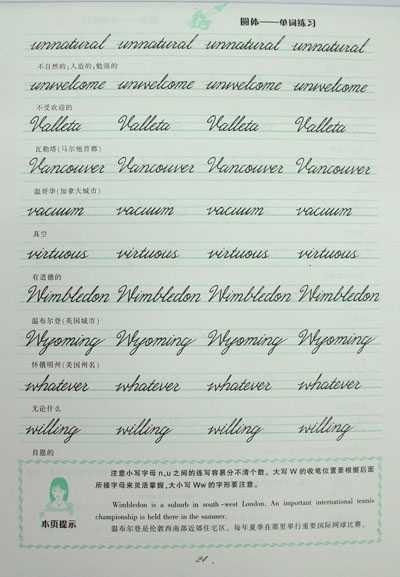 圆体——单词练习
unnatural unnatural unnatural unnatural
不自然的;人造的;勉强的
unwelcome unwelcome unwelcome unwelcome
不受欢迎的
Valleta Valleta Valleta Valleta
瓦勒塔(马尔他首都)
Vancouver Vancouver Vancouver Vancouver
温哥华(加拿大城市)
vacuum vacuum vacuum vacuum
真空
virtuous virtuous virtuous virtuous
有道德的
Wimbledon Wimbledon Wimbledon Wimbledon
温布尔登(英国城市)
Wyoming Wyoming Wyoming Wyoming
怀俄明州(美国州名)
whatever whatever whatever whatever
无论什么
willing willing willing willing
自愿的
注意小写字母 n,u 之间的连写容易分不清个数。大写 W 的收笔位置要根据后面
所接字母来灵活掌握,大小写 Ww 的字形要注意。
Wimbledon is a suburb in south-west London. An important international tennis
championship is held there in the summer.
温布尔登是伦敦西南部近郊住宅区。每年夏季在那里举行重要国际网球比赛。
本页提示
24